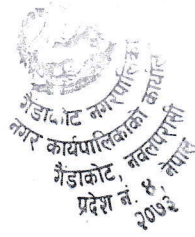 गैंडाकोट नगरपालिका
नगर कार्यपालिकाको कार्यालय
गैंडाकोट, नवलपरासी
प्रदेश नं. ४, नेपाल
२०७३